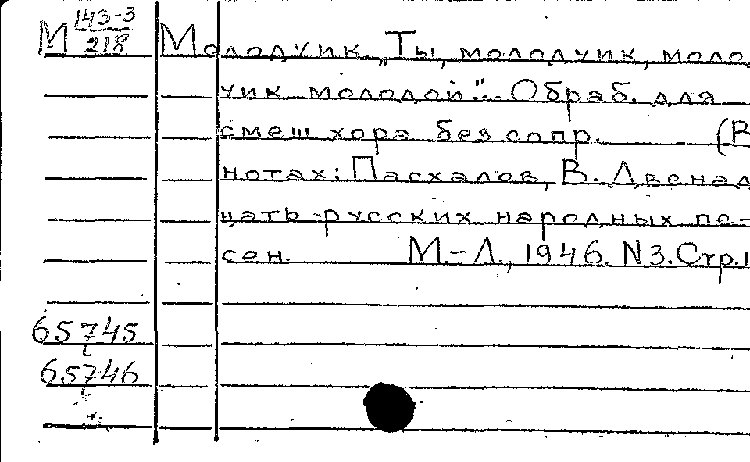 М 143-3/218
Молодчик. „Ты, молодчик, моло
чик молодой." Обраб. для
смеш хора без сопр. (В
нотах: Пасхалов, В. Двенад
цать русских народных пе-
сен. М-Л., 1946. N3. Стр.1
65745
65746